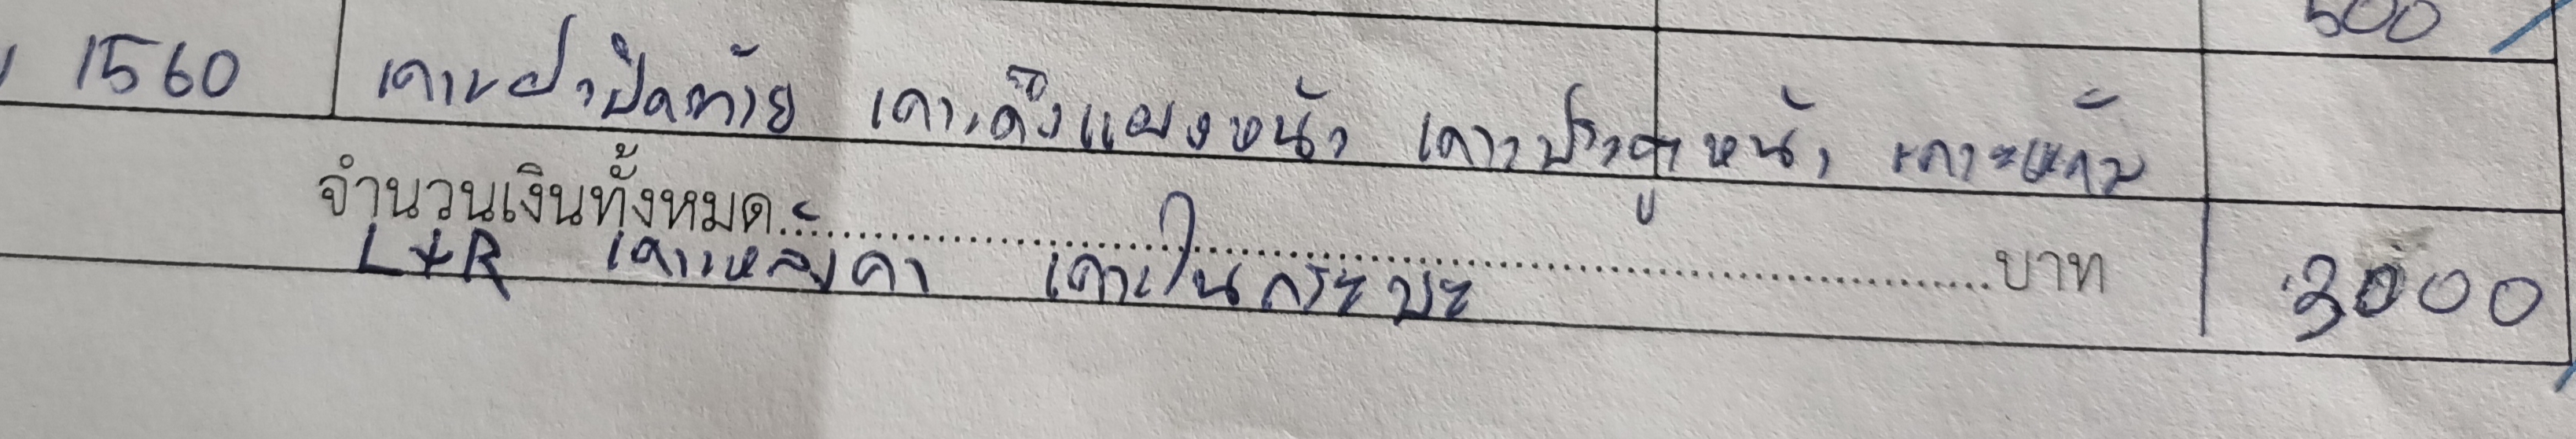 500
1560 เคาะฝาปิดท้าย เคาะดึงแผงหน้า เคาะประตูหน้า เคาะแก้ม
จำนวนเงินทั้งหมด..........บาท
L+R เคาะหลังคา เคาะในกระบะ 3000